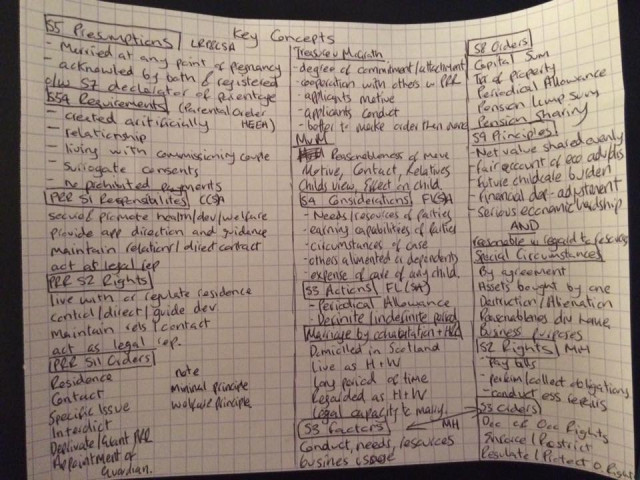 Key Concepts
S5 Presumptions / LRPRCSA
- Married at any point of pregnancy
- acknowled by both & registered
o/w S7 declarator of parentage
S54 Requirements (Parental Order
- created artificially HEEA)
- relationship
- living with commissioning couple
- Surrogate consents
- no prohibited payments
PRR S1 Responsibilites CCSA
secure & promote health/dev/welfare
provide app direction and guidance
maintain relation/direct contact
act as legal rep
PRR S2 Rights
live with or regulate residence
control/direct/guide dev
Maintain rels/contact
act as legal rep.
PRR S11 Orders
Residence note
Contact Minimal principle
Specific Issue welfare principle
Interdict
Deprivate/Grant PRR
Appointment of
Guardian.
Treasure v McGrath
- degree of commitment/attachment
- cooperation with others w PRR
- applicants motive
- applicants conduct
- better to make order than none
M v M
Reasonableness of move
Motive, Contact, Relatives
Childs view, Effect on child
S4 Considerations FL(SA
- Needs/resources of parties
- earning capabilities of parties
- circumstances of case
- others alimented or dependents
- expense of care of any child.
S3 Actions FL(SA)
- Periodical Allowance
- Definite/indefinite period
Marriage by cohabitation + H&R
Domiciled in Scotland
Live as H+W
Long period of time
Regarded as H+W
Legal capacity to marry.
S3 Factors MH
Conduct, needs, resources
busines isode
S8 Orders
Capital Sum
Tsr of Property
Periodical Allowance
Pension Lump Sum
Pension Sharing
S9 Principles
- Net value shared evenly
- Fair account of eco adv/dis
- Future childcare burden
- Financial dep - adjustment
- Serious economic hardship
AND
reasonable w regard to resources
Special Circumstances
By agreement
Assets bought by one
Destruction/Alienation
Reasonableness div home,
business purposes
S2 Rights MH
- Pay bills
- perform/collect obligations
- conduct ess repairs
S3 Orders
Dec of Occ Rights
Enforce/Restrict
Regulate/Protect O.Right